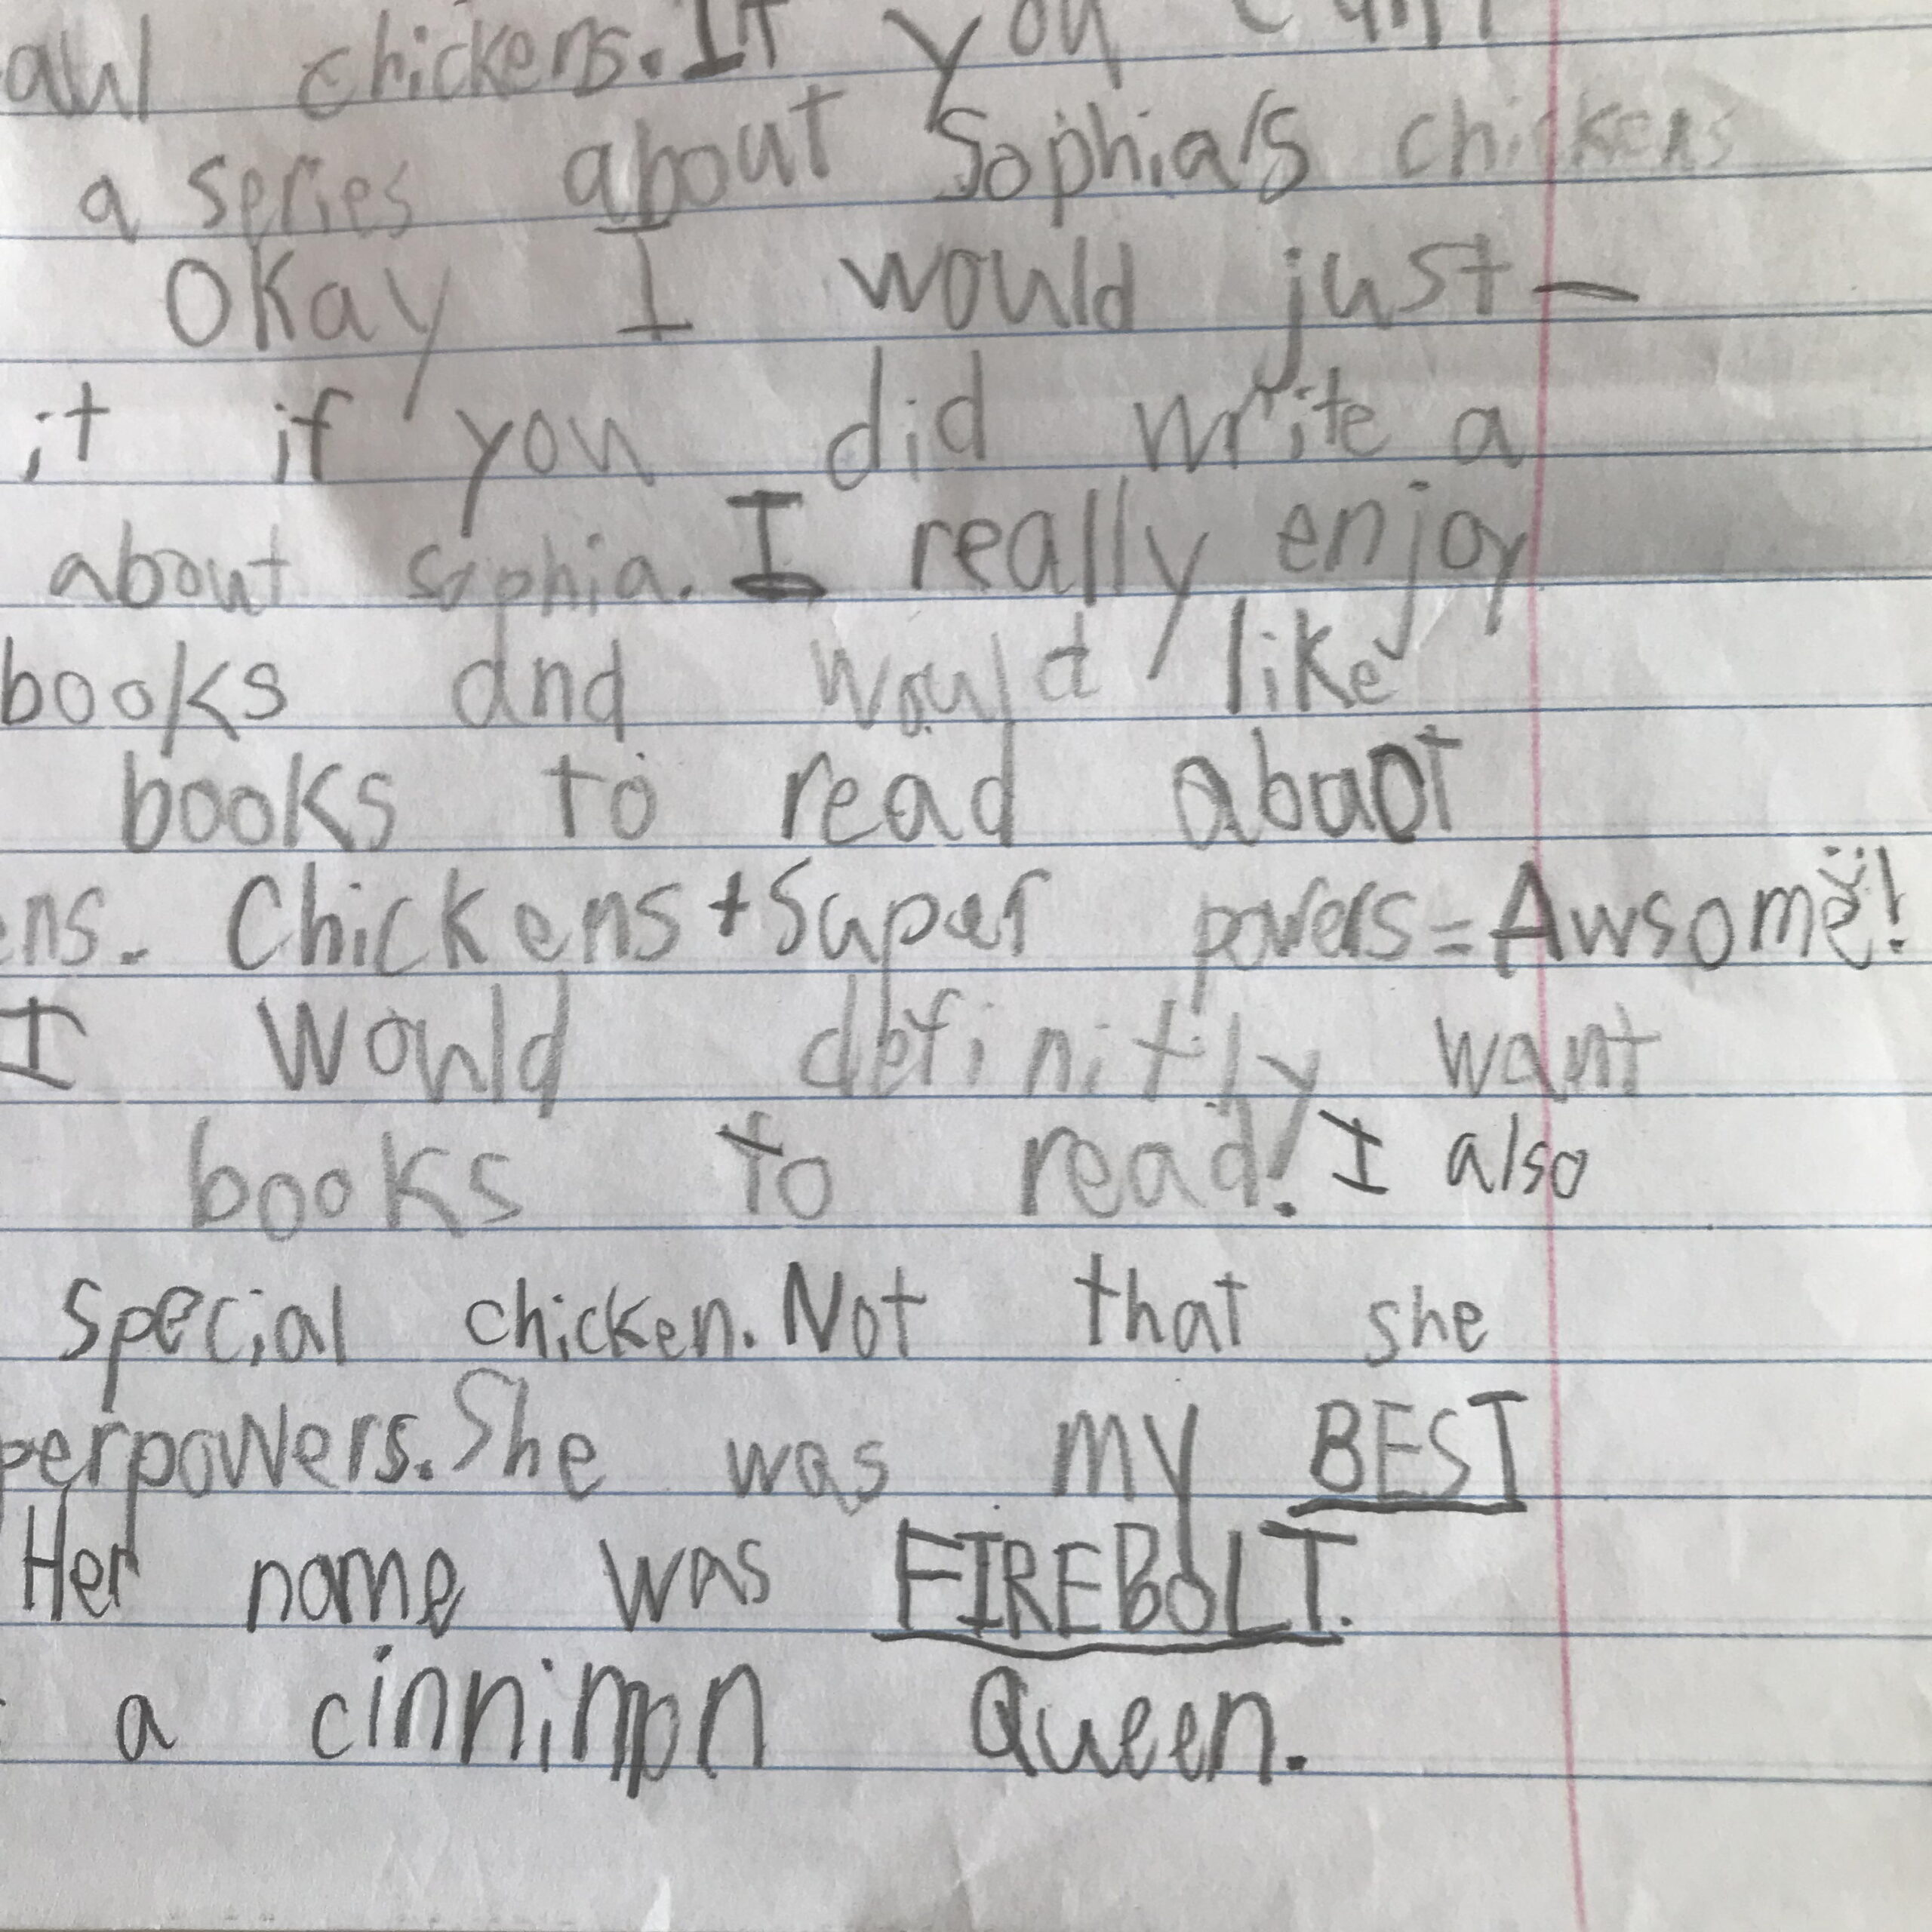 chickens. If you can't
a series about Sophia's chickens
Okay I would just—
it if you did write a
about sophia. I really enjoy
books and would like
books to read about
ens. Chickens + Super powers = Awsome!
I would definitly want
books to read! I also
special chicken. Not that she
perpowers. She was my BEST
Her name was FIREBOLT.
a cinnimon Queen.